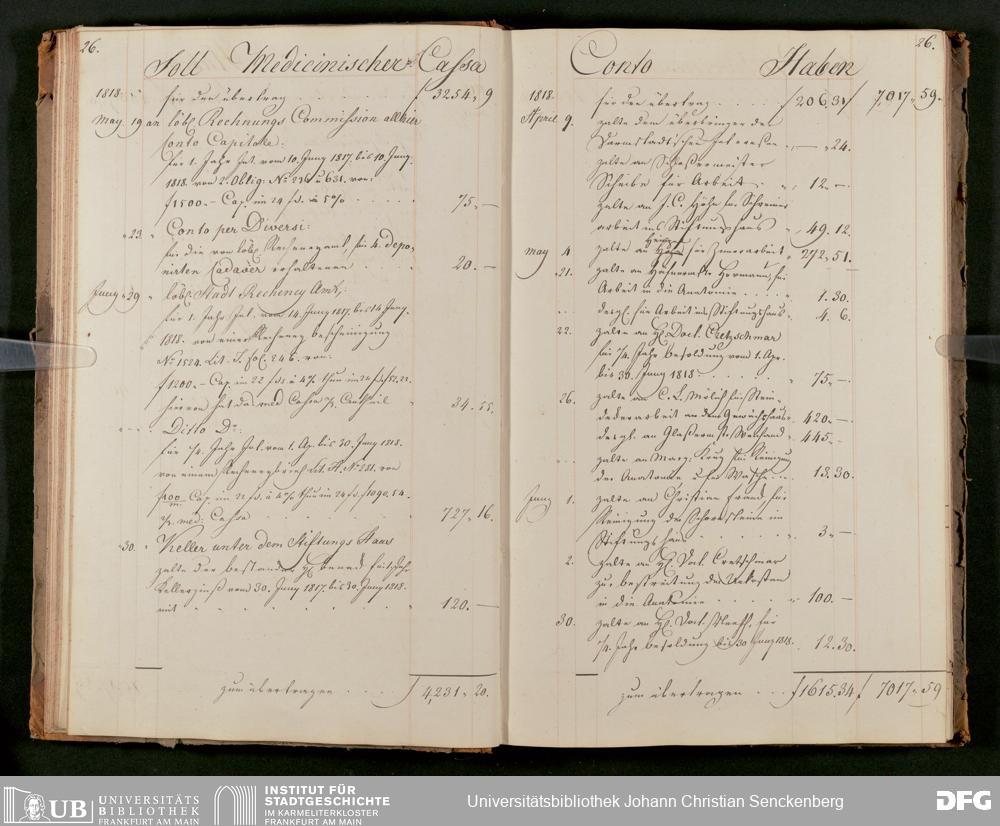 26.
Soll Medicinischer Cassa
1818. für den übertrag . . . . f 3254 „ 9
May 19 an löbl. Rechnungs Commission allhier
Conto Capitale:
für 1. Jahr Int. vom 10. Juny 1817. bis 10. Juny
1818. von 2. Oblig: No 236 u 631. von:
f 1500.– Cap. im 24 f à 5% . . . . 75 „ –
„ 23. „ Conto per Diversi:
für die von löbl. Recheneyamt, für 4. depo„
nirten Cadaver erhaltenen . . 20. –
Juny 29 „ löbl. Stadt Recheney Amt,:
für 1. Jahr Int. vom 14. Juny 1817. bis 14 Juny.
1818. von einer Recheney bescheinigung
No 1524. Lit. J. fol. 246. von:
f 1200.– Cap. im 22 f à 4% thun im 24 f
hiervon hat die med Cassa 34. 55.
Ditto Do:
für 1/4. Jahr Int. vom 1. Ap. bis 30. Juny 1818.
von einem Recheneybrief Lit. A. No 281. von
Cap. im 22 f à 4% thun im 24 f 1090. 54.
med: Cassa . . . . 727 „ 16.
„ 30. „ Keller unter dem Stiftungs Haus
zalte der
Kellerzinß vom 30. Juny 1817. bis 30. Juny 1818.
mit . . . . „ 120. –
zum übertragen . . . . f 4,231 „ 20.
26.
Conto Haben
1818. für den übertrag . . . f 206.31 f 7,017 „ 59.
April 9. zalte dem überbringer der
Darmstädtischen Interessen . „ – „ 24.
zalte an Schlossermeister
Scheibe für Arbeit . . „ 12. –
zalte an J. C. Höhn für Schreiner
arbeit ins Stiftungshaus „ 49. 12.
May 4 zalte an für Zimmerarbeit „ 272 „ 51.
21. zalte an Hafnermeister Hermann, für
Arbeit in die Anatomie . . . . „ 1. 30.
desgl. für Arbeit ins Stiftungshaus „ 4. 6.
22. zalte an H. Doct. Cretzschmar
für 1/4. Jahr besoldung vom 1. Apr.
bis 30. Juny 1818 . . . . . „ 75 „ –
26. zalte an C. L. Mölich für Stein„
dekerarbeit an dem Gewächshaus „ 420. –
desgl. an Glasermstr. Weihand „ 445 „ –
zalte an Marg. Krug für Reinigung
der Anatomie u für Wasche . . „ 18. 30.
Juny 1. zalte an Christian Frand, für
Reinigung der Schornsteine im
Stiftungshaus . . . . . . „ 3 „ –
2. zalte an H. Doct. Cretzschmar
zur bestreitung der Unkosten
in die Anatomie . . . . . „ 100. –
30. zalte an H. Doct. Neeff, für
1/4. Jahr besoldung bis 30 Juny 1818. „ 12. 30.
zum übertragen . . . f 1615. 34 f 7017 „ 59
UB UNIVERSITÄTS
BIBLIOTHEK
FRANKFURT AM MAIN
INSTITUT FÜR
STADTGESCHICHTE
IM KARMELITERKLOSTER
FRANKFURT AM MAIN
Universitätsbibliothek Johann Christian Senckenberg
DFG